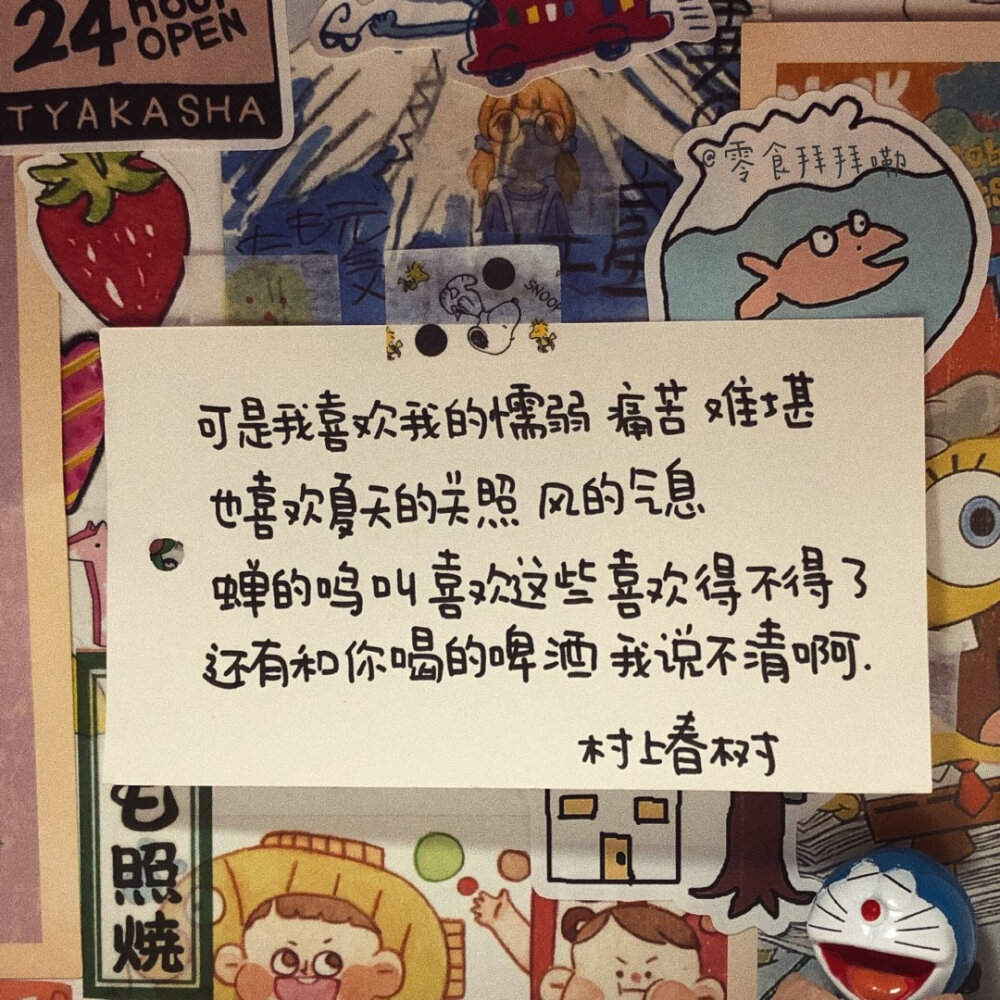 24 HOUR
OPEN
TYAKASHA
@零食拜拜嘞
SNOOPY
可是我喜欢我的懦弱 痛苦 难堪
也喜欢夏天的关照 风的气息
蝉的鸣叫喜欢这些喜欢得不得了
还有和你喝的啤酒 我说不清啊.
村上春树
照
燒